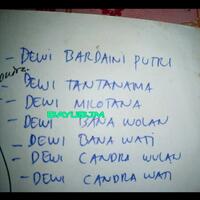 - DEWI BARDAINI PUTRI
- DEWI TANTANAMA
- DEWI MILOTANA
- DEWI BANA WOLAN
- DEWI BANA WATI
- DEWI CANDRA WULAN
- DEWI CANDRA WATI